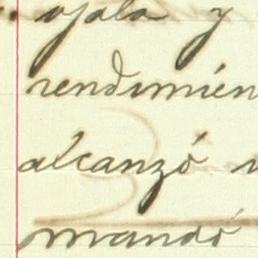 ojala y
rendimien
alcanzó
mandó